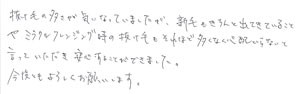 抜け毛の多さが気になっていましたが、新毛もきちんと出てきていること
やミラクルクレンジング時の抜け毛もそれほど多くなく心配いらないと
言っていただき安心することができました。
今後ともよろしくお願いします。